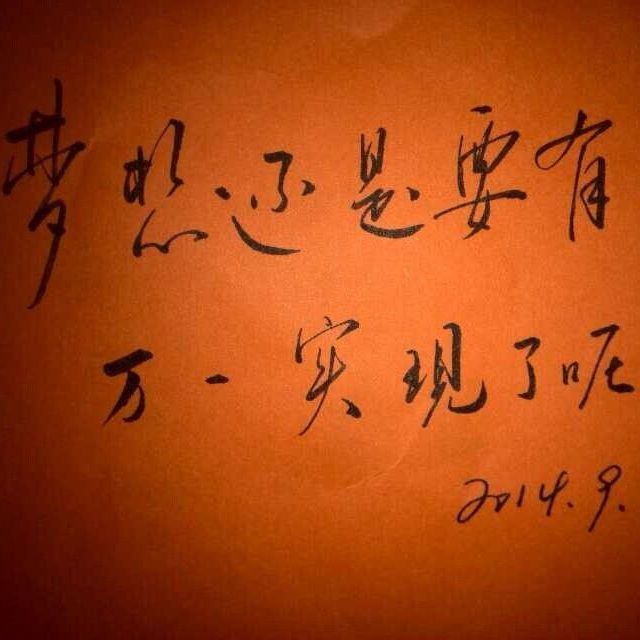 梦想还是要有
万一实现了呢
2014.9.